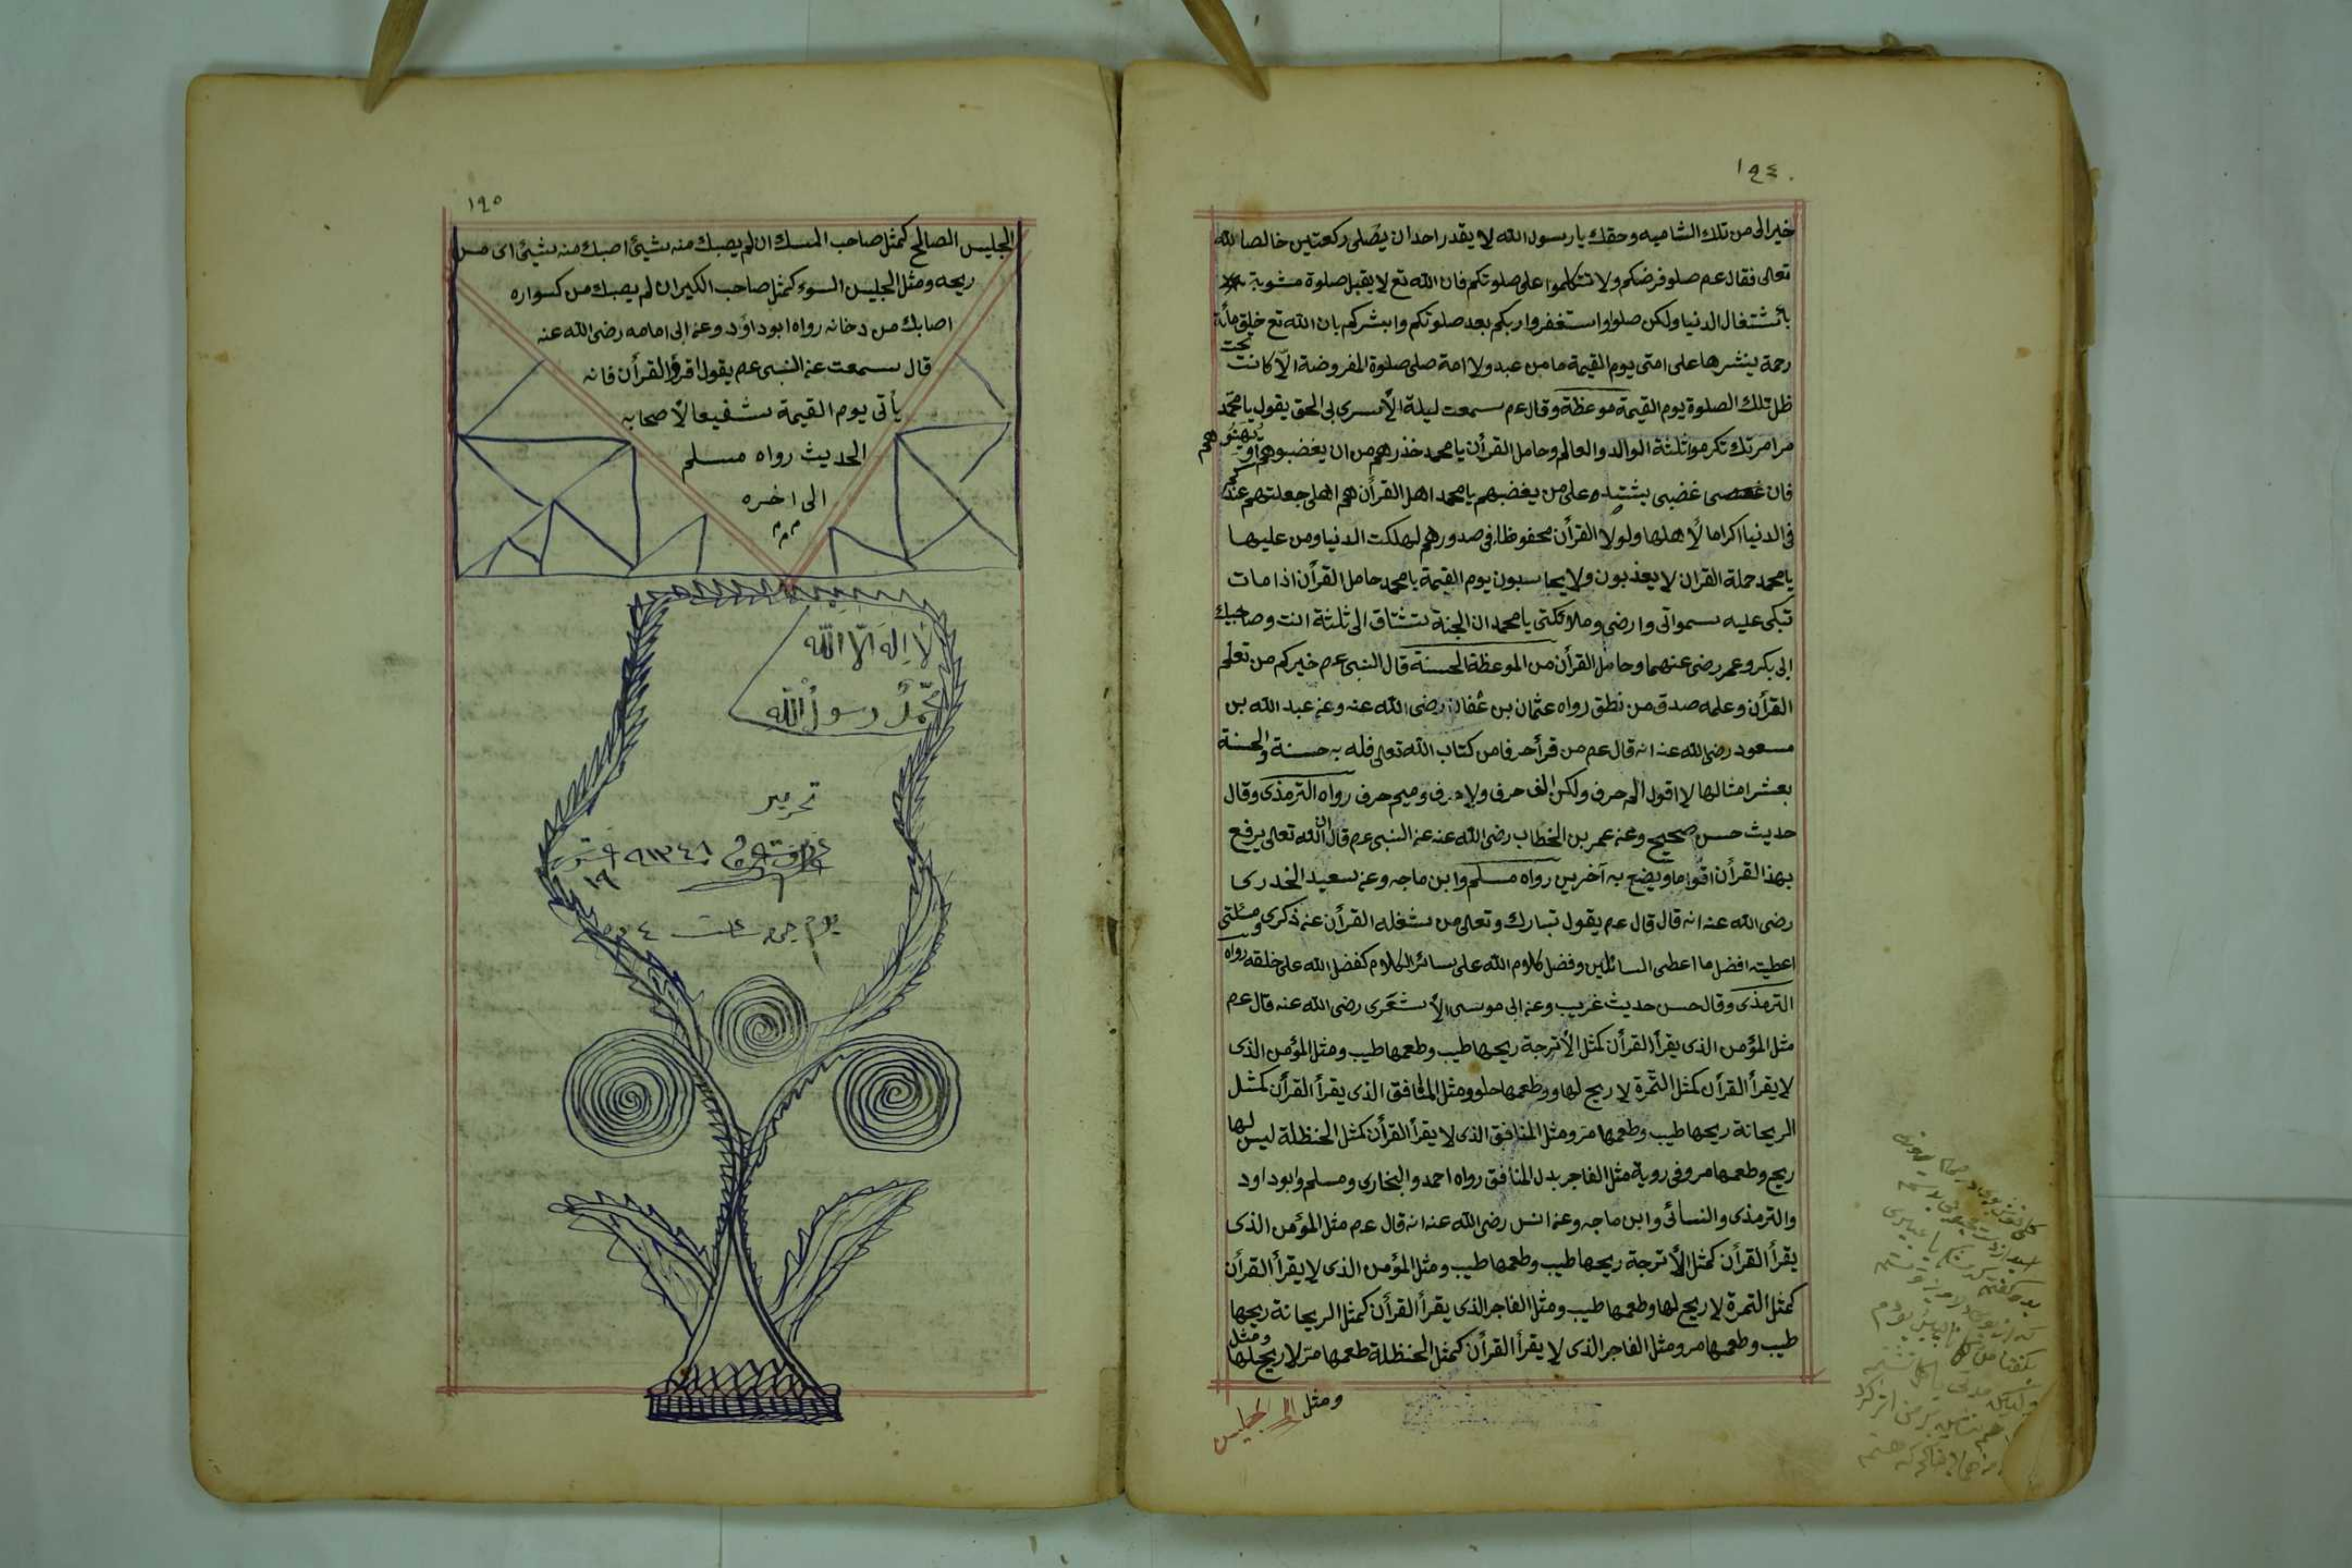 ١٩٤
خيرالى من تلك الشاميه وحقك يا رسول الله لا يقدر احد ان يصلى ركعتين خالصا لله
تعالى فقال عم صلو فرضكم ولا تتكلموا على صلوتكم فان الله تع لا يقبل صلوة مشوبة
بأشتغال الدنيا ولكن صلوا واستغفروا ربكم بعد صلوتكم وابشركم بان الله تع خلق مأنة
رحمة ينشرها على امتى يوم القيمة ما من عبد ولا امة صلى صلوة المفروضة الّا كانت تحت
ظل تلك الصلوة يوم القيمة موعظة وقال عم سمعت ليلة الأسرى بى الحق يقول يا محمد
مر امرتك تكرموا ثلثة الوالد والعالم وحامل القرأن يا محمد خذرهم من ان يغضبوهم او يهنو هم
فان غضبى يشتد على من يغضبهم يا محمد اهل القرأن هم اهلى جعلتهم عندكم
فى الدنيا اكراما لأهلها ولولا القرأن محفوظا فى صدورهم لهلكت الدنيا ومن عليها
يا محمد حملة القران لا يعذبون ولا يحاسبون يوم القيمة يا محمد حامل القرأن اذا مات
تبكى عليه سمواتى وارضى وملائكتى يا محمد ان الجنة تشتاق الى ثلثة انت وصاحبيك
ابى بكر وعمر رضى عنهما وحامل القرأن من الموعظة الحسنة قال النبى عم خيركم من تعلم
القرأن وعلمه صدق من نطق رواه عثمان بن عُفان رضى الله عنه وعن عبد الله بن
مسعود رضى الله عنه انه قال عم من قرأ حرفا من كتاب الله تعالى فله به حسنة والحسنة
بعشر امثالها لا اقول الم حرف ولكن الف حرف ولام حرف وميم حرف رواه الترمذى وقال
حديث حسن صحيح وعن عمر بن الخطاب رضى الله عنه عن النبى عم قال ان الله تعالى يرفع
بهذا القرأن اقواما ويضع به آخرين رواه مسلم وابن ماجه وعن سعيد الخدرى
رضى الله عنه انه قال قال عم يقول تبارك وتعالى من شغله القرأن عن ذكرى ومسئلتى
اعطيته افضل ما اعطى السائلين وفضل كلام الله على سائر الكلام كفضل الله على خلقه رواه
الترمذى وقال حسن حديث غريب وعن ابى موسى الأشعرى رضى الله عنه قال عم
مثل المؤمن الذى يقرأ القرأن كمثل الأترجة ريحها طيب وطعمها طيب ومثل المؤمن الذى
لا يقرأ القرأن كمثل التمرة لا ريح لها وطعمها حلو ومثل المنافق الذى يقرأ القرأن كمثل
الريحانة ريحها طيب وطعمها مر ومثل المنافق الذى لا يقرأ القرأن كمثل الحنظلة ليس لها
ريح وطعمها مر وفى روية مثل الفاجر بدل المنافق رواه احمد والبخارى ومسلم وابو داود
والترمذى والنسائى وابن ماجه وعن انس رضى الله عنه انه قال عم مثل المؤمن الذى
يقرأ القرأن كمثل الأترجة ريحها طيب وطعمها طيب ومثل المؤمن الذى لا يقرأ القرأن
كمثل التمرة لا ريح لها وطعمها طيب ومثل الفاجر الذى يقرأ القرأن كمثل الريحانة ريحها
طيب وطعمها مر ومثل الفاجر الذى لا يقرأ القرأن كمثل الحنظلة طعمها مرّ لا ريح لها ومثل
ومثل الجليس
١٩٥
الجليس الصالح كمثل صاحب المسك ان لم يصبك منه شيئ اصبك منه شيئ اى من
ريحه ومثل الجليس السوء كمثل صاحب الكير ان لم يصبك من كسواره
اصابك من دخانه رواه ابو داؤد وعن ابى امامه رضى الله عنه
قال سمعت عن النبى عم يقول اقرؤ القرأن فانه
يأتى يوم القيمة شفيعا لأصحابه
الحديث رواه مسلم
الى اخره
م م م
لا اِلهَ الّا الله
مُحمّدٌ رسولُ الله
تحرير
١٣٤٨
١٩
يوم ٤